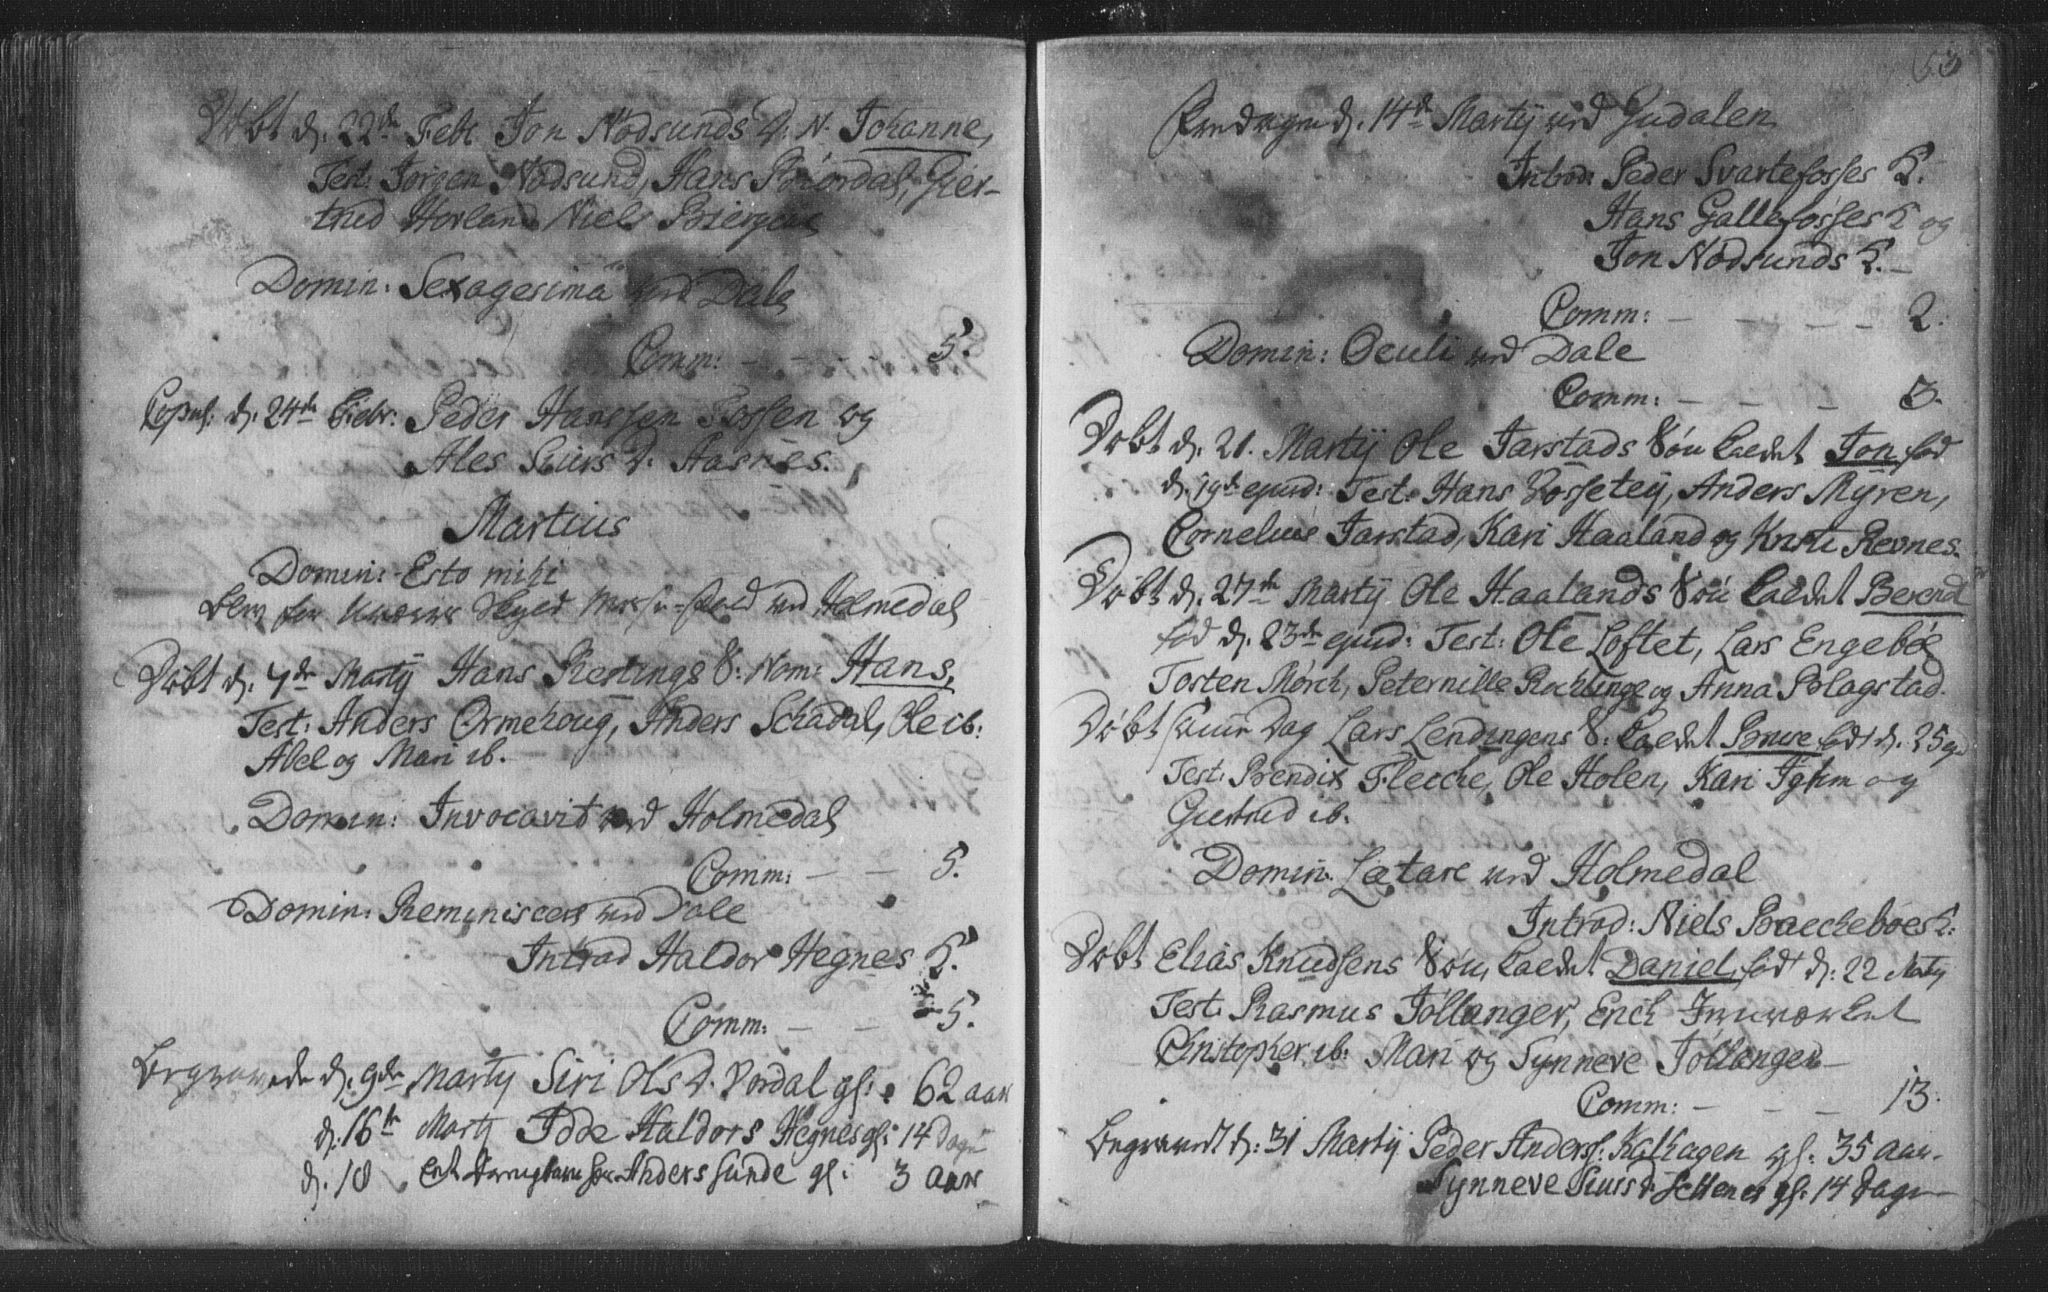 Døbt d. 22de Febr Jon Nodsunds D. N. Johanne,
Test: Jørgen Nodsund, Hans Biordal, Gier-
trud Horland Niels
Domin: Sexagesimä ved Dale
Comm: — — — 5.
Copul: d. 24de Febr: Peder Hanssen Fossen og
Ales Siurs D. Aasnes.
Martius
Domin: Esto mihi
blev for Weyrs Skyld Messe-fald ved Holmedal
Døbt d. 7de Martij Hans Restings S: Nom: Hans,
Test: Anders Ormehoug, Anders Schadal, Ole ib:
Abel og Mari ib.
Domin: Invocavit ved Holmedal
Comm: — — 5.
Domin: Reminiscere ved Dale
Introd Haldor Hegnes K.
Comm: — — 5.
Begravede d. 9de Martij Siri Ols D. Vordal gl: 62 aar
d. 16de Martij Haldors Hegnes gl: 14 Dage
d. 18 Anders Sunde gl: 3 aar
63
Prædagen d. 14de Martij ved Gudalen
Introd: Peder Svartefosses K.
Hans Gallefosses K og
Jon Nodsunds K. —
Comm: — — — — 2.
Domin: Oculi ved Dale
Comm: — — — 3.
Døbt d. 21. Martij Ole Jarstads Søn kaldet Jon, fød
d. 19de ejusd: Test: Hans Vossetej, Anders Myren,
Cornelius Jarstad, Kari Haaland og Kristi Revnes.
Døbt d. 27de Martij Ole Haalands Søn kaldet Berend
fød d. 23de ejusd: Test: Ole Loftet, Lars Engebøe
Torsten Mørch, Peternille og Anna Blagstad.
Døbt samme Dag Lars Lendingens S: kaldet født d. 25
Test: Bendix Fleche, Ole Holen, Kari og
Giertrud ib.
Domin. Lætare ved Holmedal
Introd: Niels Baecheboes K:
Døbt Elias Knudsens Søn, kaldet Daniel, født d: 22 Martij
Test: Rasmus Jollanger, Erich
Christopher ib: Mari og Synneve Jollanger —
Comm: — — — 13.
Begravet d: 31 Martij Peder Anders: Kalhagen gl: 35 aar.
Synneve Siurs D. gl: 14 Dage